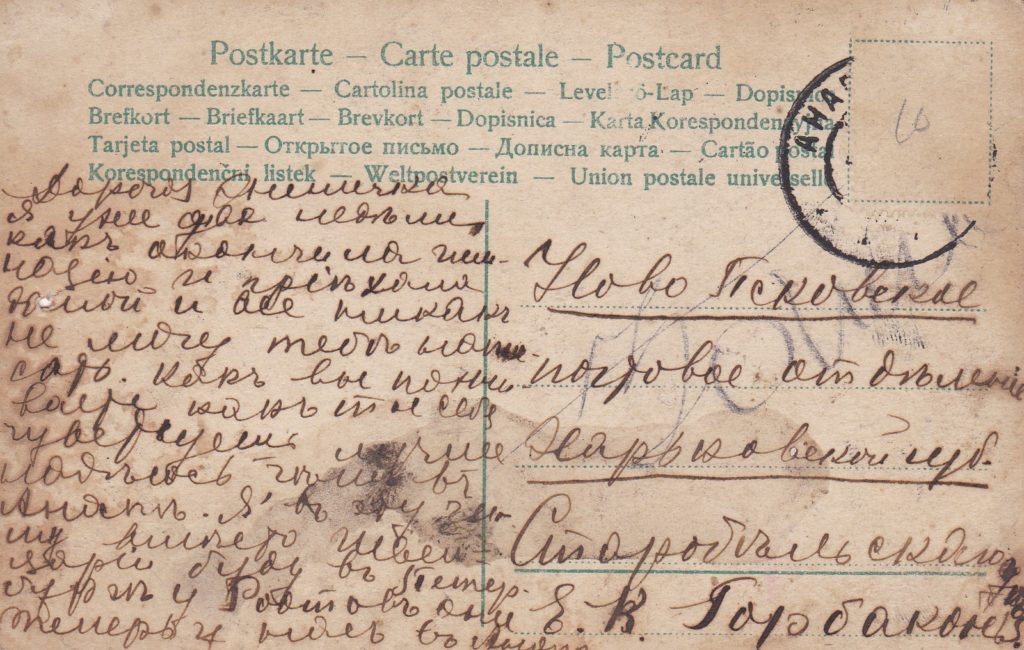 Postkarte — Carte postale — Postcard
Correspondenzkarte — Cartolina postale — Level -Lap — Dopisnice
Brefkort — Briefkaart — Brevkort — Dopisnica — Karta Korespondencyjna
Tarjeta postal — Открытое письмо — Дописна карта — Cartão postal
Korespondenční listek — Weltpostverein — Union postale universelle
АНАП
10
Дорогая
я уже две недѣли,
какъ окончила гим-
назію и пріѣхала
домой и все никакъ
не могу тебѣ напи-
сать. Какъ вы пожи
ваете какъ ты себя
чувствуешь лучше
въ
Анапѣ. Я въ эту
зиму вмѣсто Швей-
царіи буду въ Петер-
бургѣ у Ростовъ они
теперь у насъ въ
Ново Псковское
почтовое отдѣленіе
Харьковской губ.
Старобѣльскаго
Е. К. Горбаконь